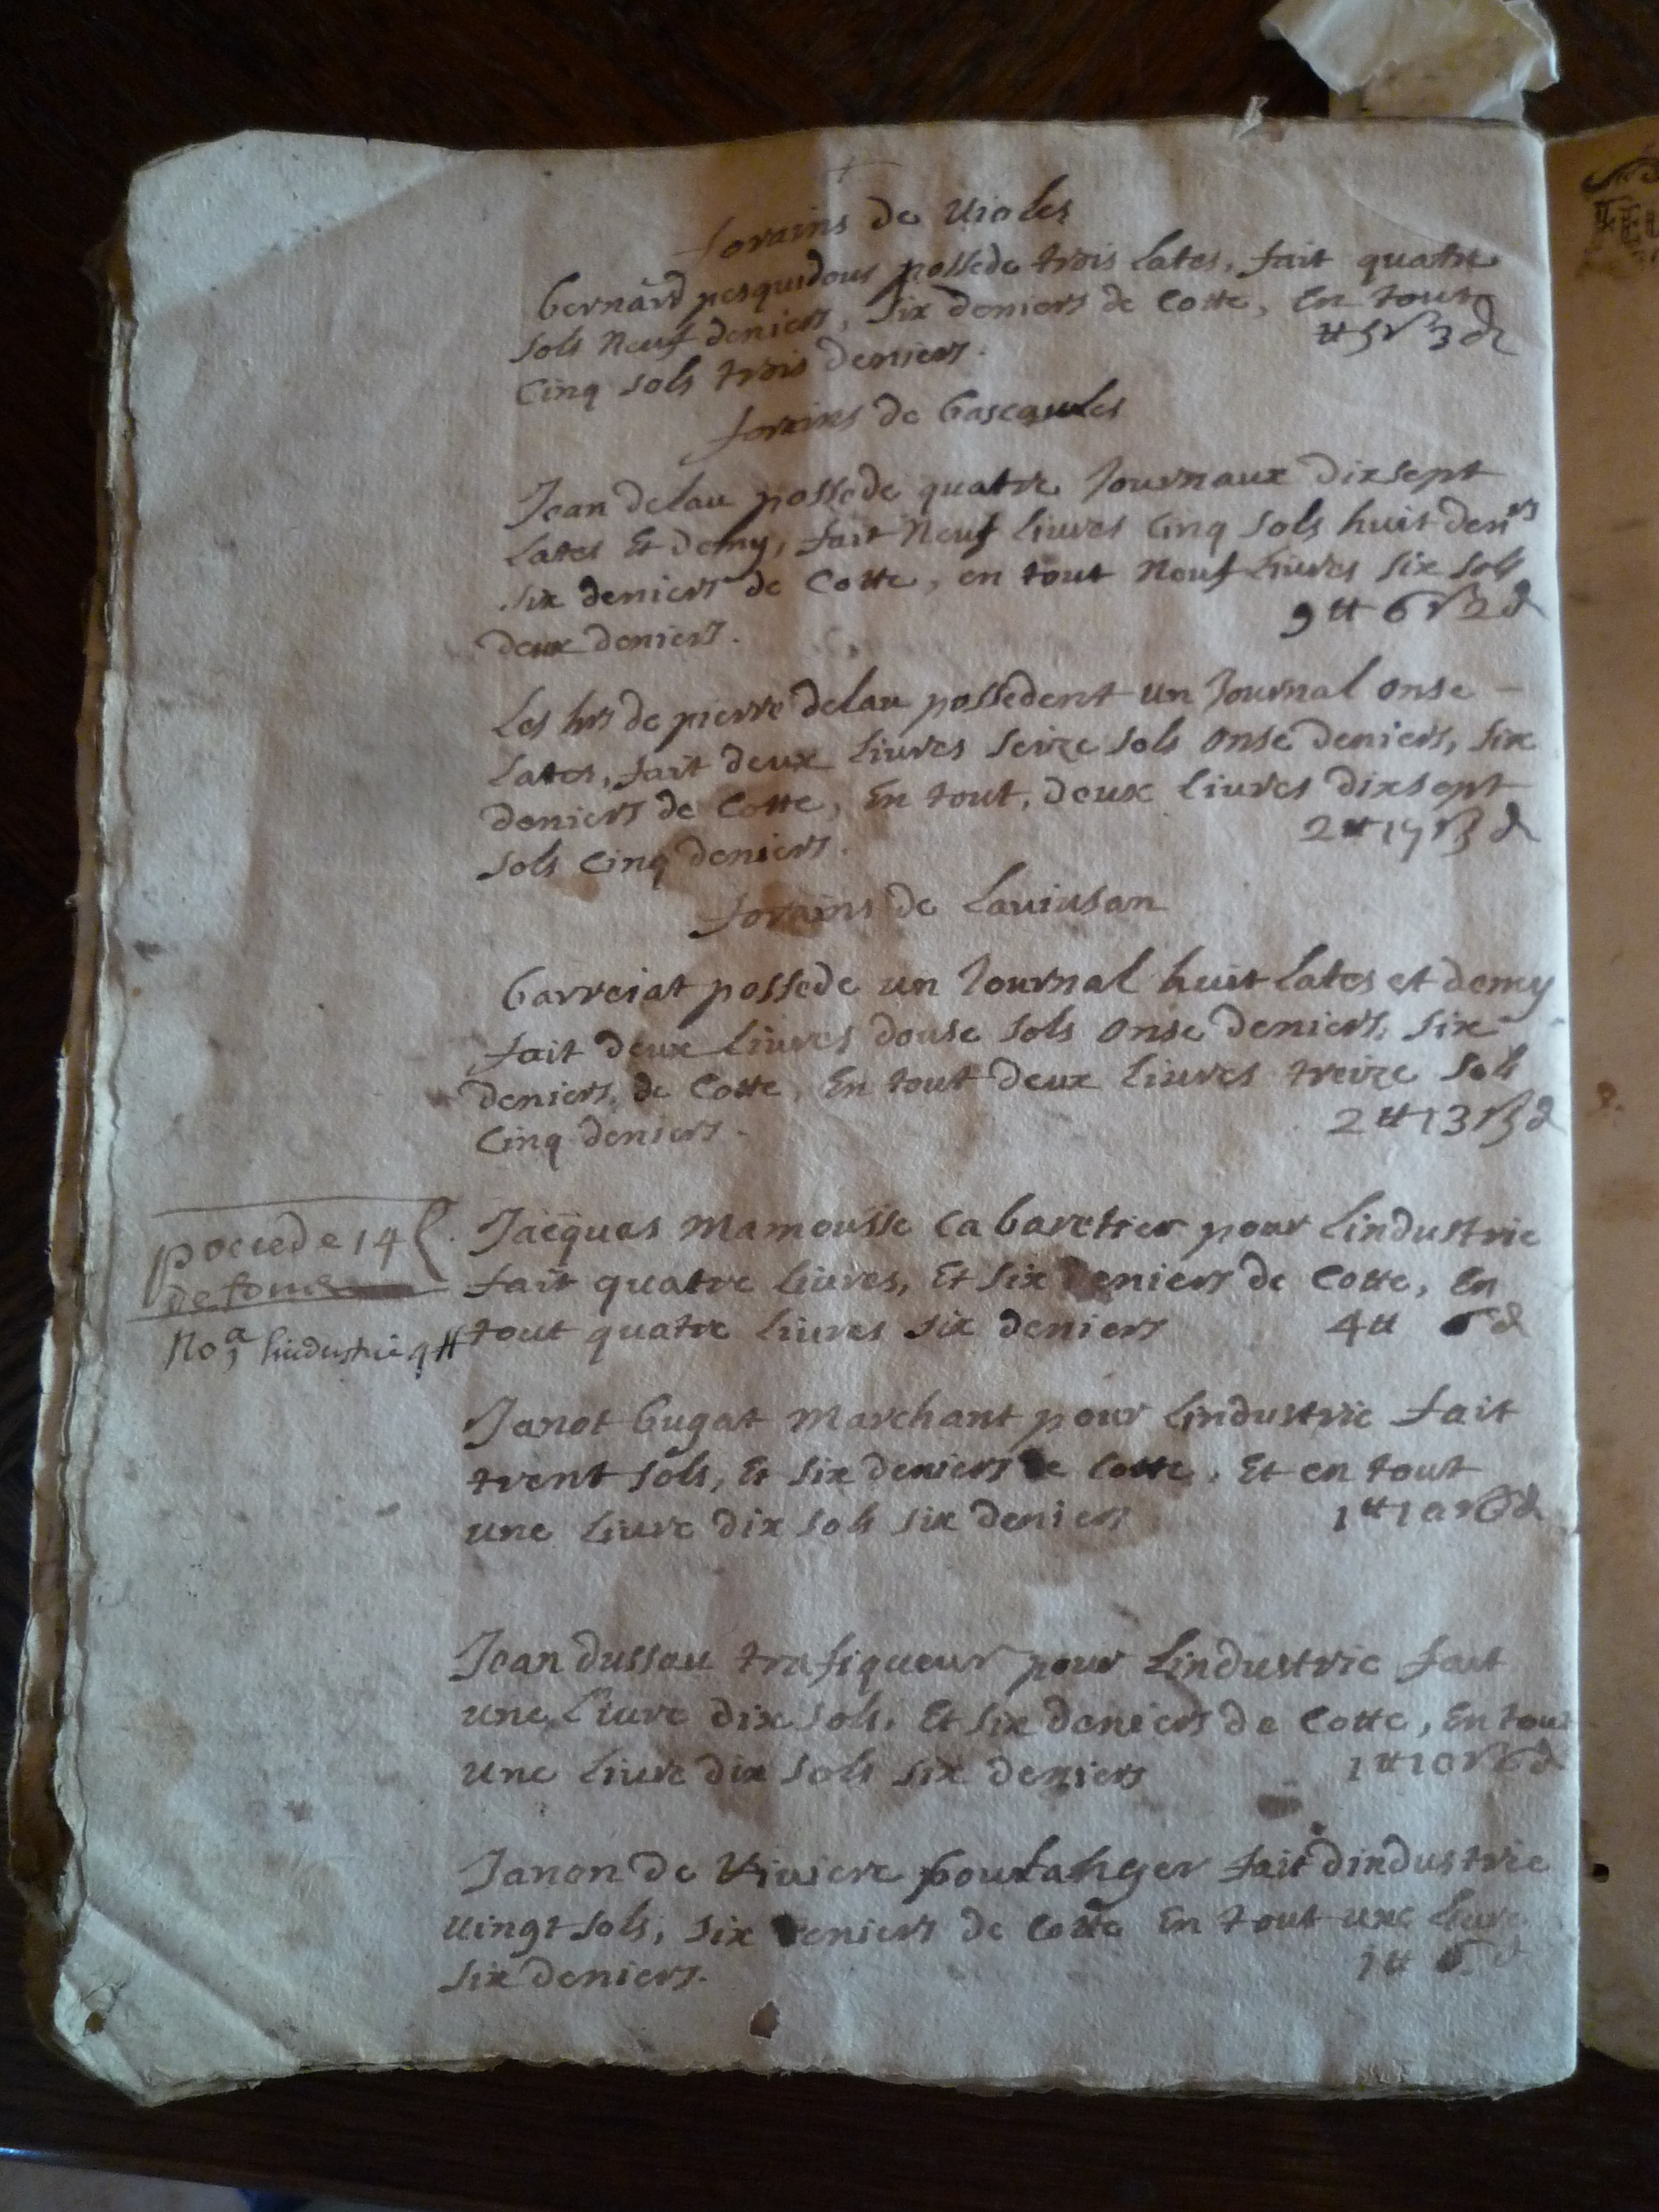 forains de Violes
bernard pesquidous possede trois lates, fait quatre
sols Neuf deniers, six deniers de Cotte, En tout
Cinq sols trois deniers. ₶5s3d
forains de bascaules
Jean delau possede quatre Journaux dixsept
lates Et demy, fait Neuf liures Cinq sols huit den.rs
six deniers de Cotte, en tout Neuf liures six sols
deux deniers. 9₶6s2d
Les hrs de pierre delau possedent un Journal onse
lates, fait deux liures seize sols onse deniers, six
deniers de Cotte, En tout, deux liures dixsept
sols Cinq deniers. 2₶17s5d
forains de Lauiusan
barreiat possede un Journal huit lates et demy
fait deux liures douse sols onse deniers, six
deniers, de Cotte, En tout deux liures treize sols
Cinq deniers. 2₶13s5d
pocede 14 l.
de
No.a lindustrie 4₶
Jacques mamousse Cabaretier pour lindustrie
fait quatre liures, Et six deniers de Cotte, En
tout quatre liures six deniers 4₶ 6d
Janot bugat marchant pour lindustrie fait
trent sols, Et six deniers de Cotte, Et en tout
une liure dix sols six deniers 1₶10s6d
Jean dussau trafiqueur pour lindustrie fait
une liure dix sols, Et six deniers de Cotte, En tout
une liure dix sols six deniers 1₶10s6d
Janon de Riuiere boulanger fait dindustrie
uingt sols, six deniers de Cotte En tout une liure
six deniers. 1₶ 6d